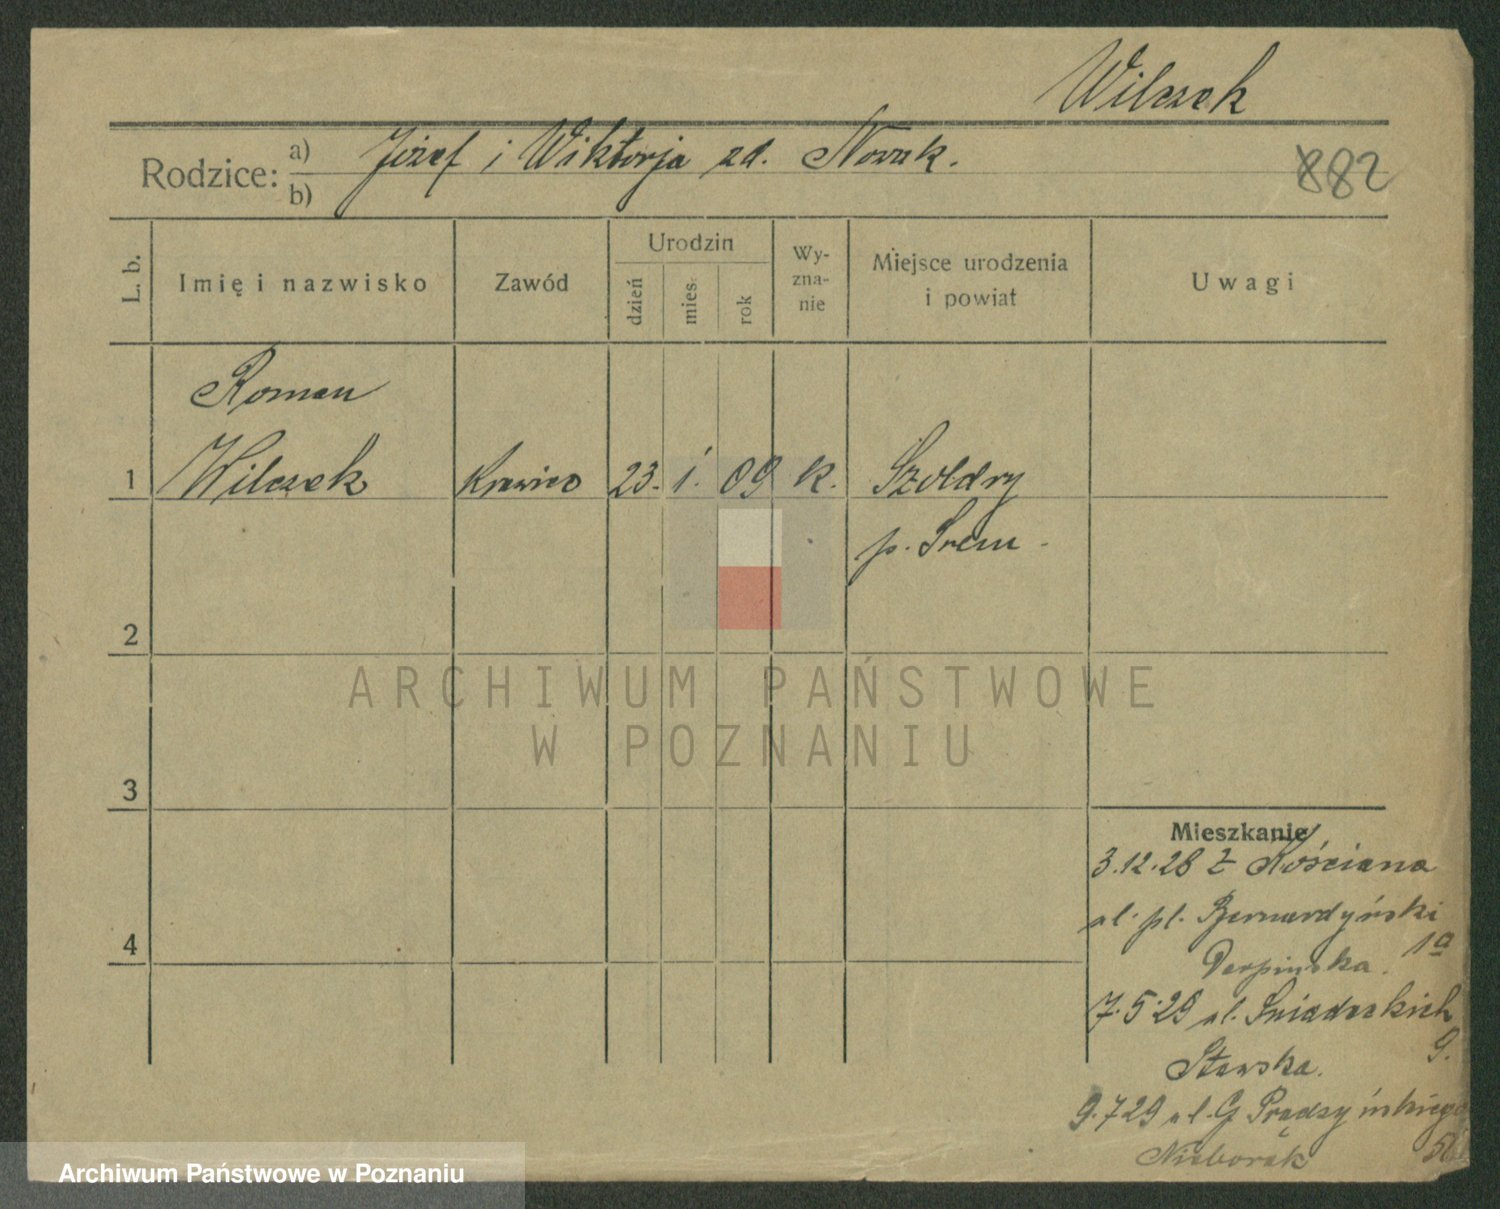 Wilczek
Rodzice: a) Józef i Wiktorja zd. Nowak.
b)
882
L. b. Imię i nazwisko Zawód Urodzin dzień mies. rok Wyzna-nie Miejsce urodzenia i powiat Uwagi
Roman
1 Wilczek Krawiec 23. 1. 09 k. Szołdry
p. Śrem.
2
3
4
Mieszkanie
3.12.28 z Kościana
ul. pl. Bernardyński
1a
7.5.29 ul. Śniadeckich
9.
Stawska.
9.7.29 ul. G Prądzyńskiego
Nieborak
ARCHIWUM PAŃSTWOWE
W POZNANIU
Archiwum Państwowe w Poznaniu